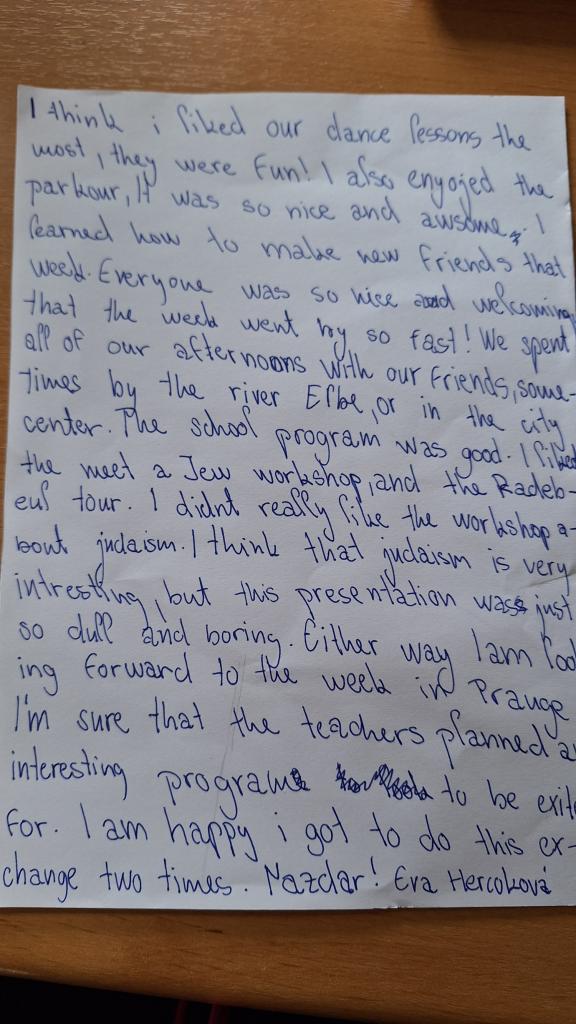 I think i liked our dance lessons the
most, they were fun! I also enyojed the
parkour, It was so nice and awsome. I
learned how to make new friends that
week. Everyone was so nice and welcoming,
that the week went by so fast! We spent
all of our afternoons with our friends, some-
times by the river Elbe, or in the city
center. The school program was good. I liked
the meet a Jew workshop, and the Radeb-
eul tour. I didnt really like the workshop a-
bout judaism. I think that judaism is very
intresting, but this presentation was just
so dull and boring. Either way I am loo
ing forward to the week in Prauge
I'm sure that the teachers planned a
interesting program to be exit
for. I am happy i got to do this ex-
change two times. Nazdar! Eva Hercoková